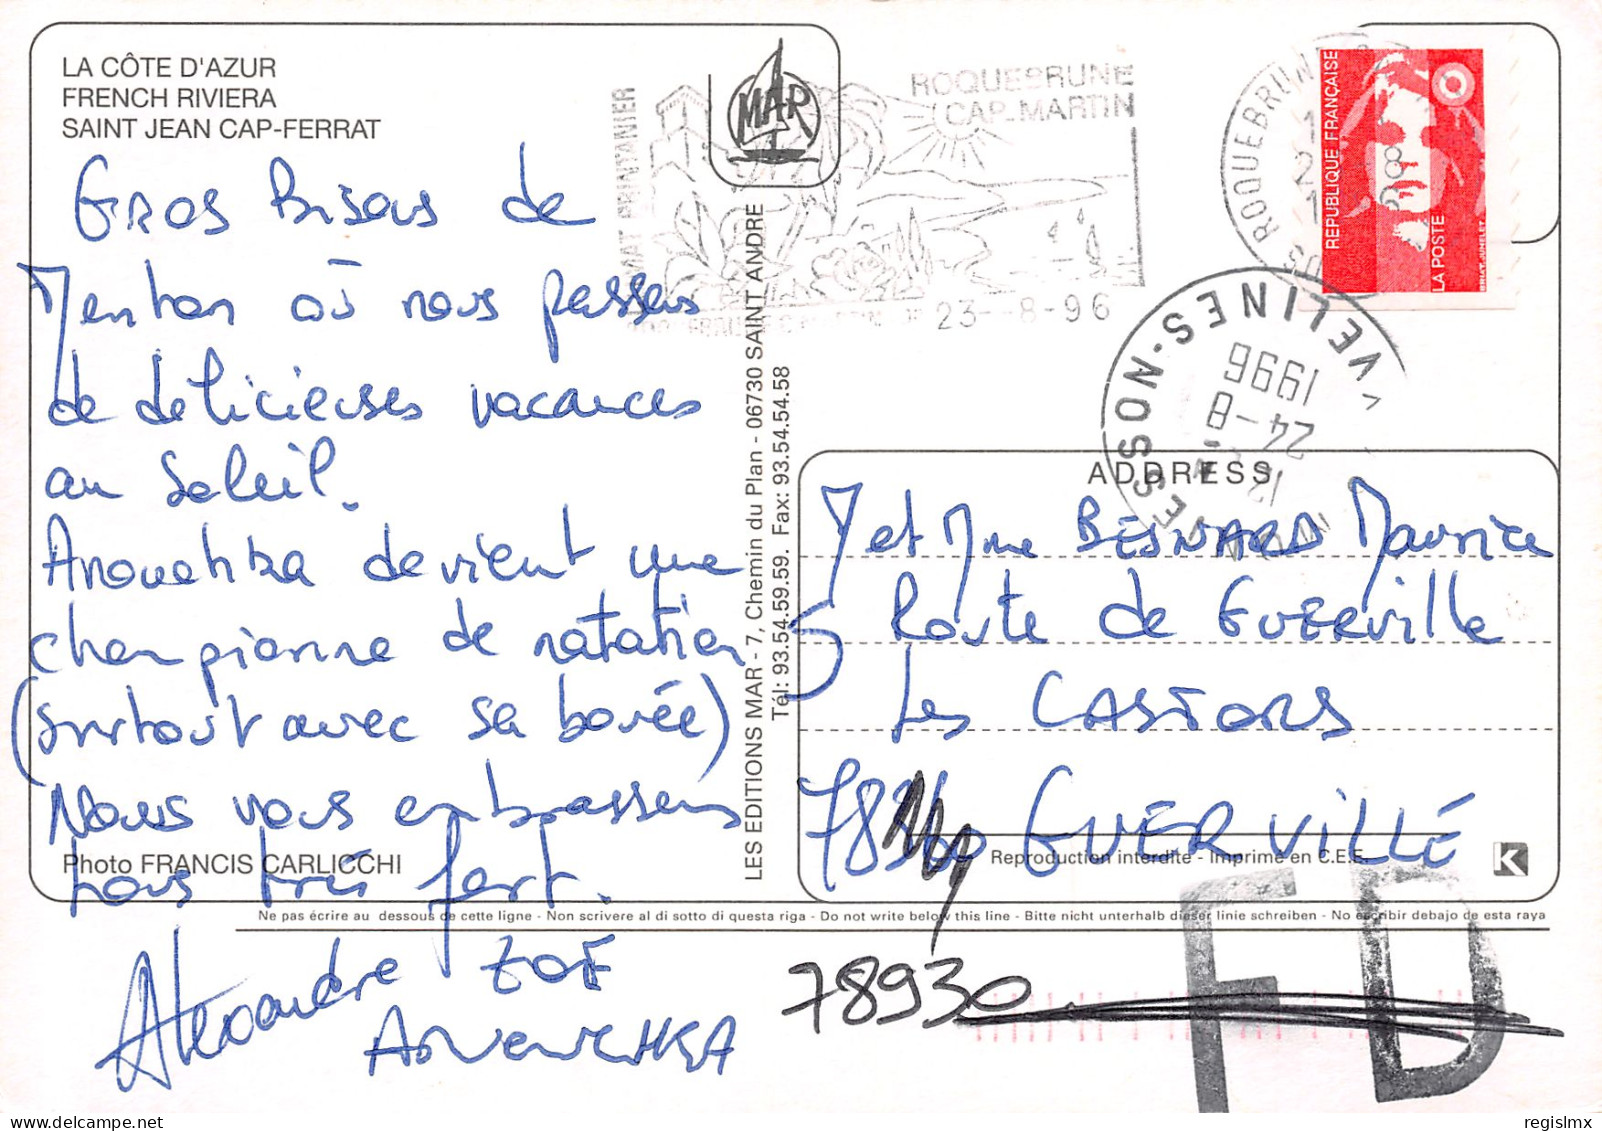 LA CÔTE D'AZUR
FRENCH RIVIERA
SAINT JEAN CAP-FERRAT
Gros Bisous de
Menton où nous passons
de délicieuses vacances
au soleil.
Anouchka devient une
championne de natation
(surtout avec sa bouée)
Nous vous embrassons
tous très fort.
Alexandre ZOE
ANOUCHKA
Photo FRANCIS CARLICCHI
MAR
ROQUEBRUNE
CAP-MARTIN
23-8-96
ROQUEBRUN
REPUBLIQUE FRANÇAISE
LA POSTE
YVELINES
1996
24-8
LES EDITIONS MAR - 7, Chemin du Plan - 06730 SAINT ANDRE
Tél: 93.54.59.59. Fax: 93.54.54.58
ADDRESS
M et Mme BESNARD Maurice
5 Route de GUERVILLE
Les CASTORS
GUERVILLE
Reproduction interdite - Imprime en C.E.E.
K
Ne pas écrire au dessous de cette ligne - Non scrivere al di sotto di questa riga - Do not write below this line - Bitte nicht unterhalb dieser linie schreiben - No escribir debajo de esta raya
78930
FD
regislmx